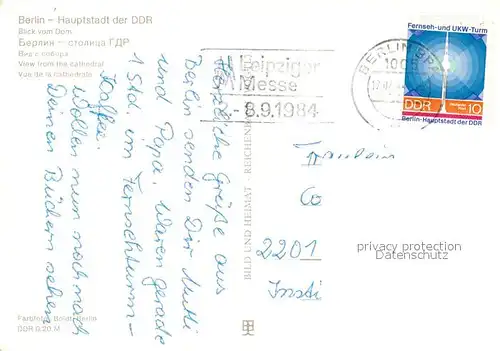 Berlin – Hauptstadt der DDR
Blick vom Dom
Берлин – столица ГДР
Вид с собора
View from the cathedral
Vue de la cathédrale
Leipziger
Messe
- 8.9.1984
BERLIN BPA
Fernseh- und UKW-Turm
DDR 10
Berlin-Hauptstadt der DDR
Herzliche Grüße aus
Berlin senden Dir Mutti
und Papa. Waren gerade
1 Std. im Fernsehturm-
Kaffee.
Wollen nun noch nach
Deinen Büchern sehen
BILD UND HEIMAT · REICHENBACH
Fräulein
Co
2201
Insti
privacy protection
Datenschutz
Farbfoto: Boldt, Berlin
DDR 0,20 M